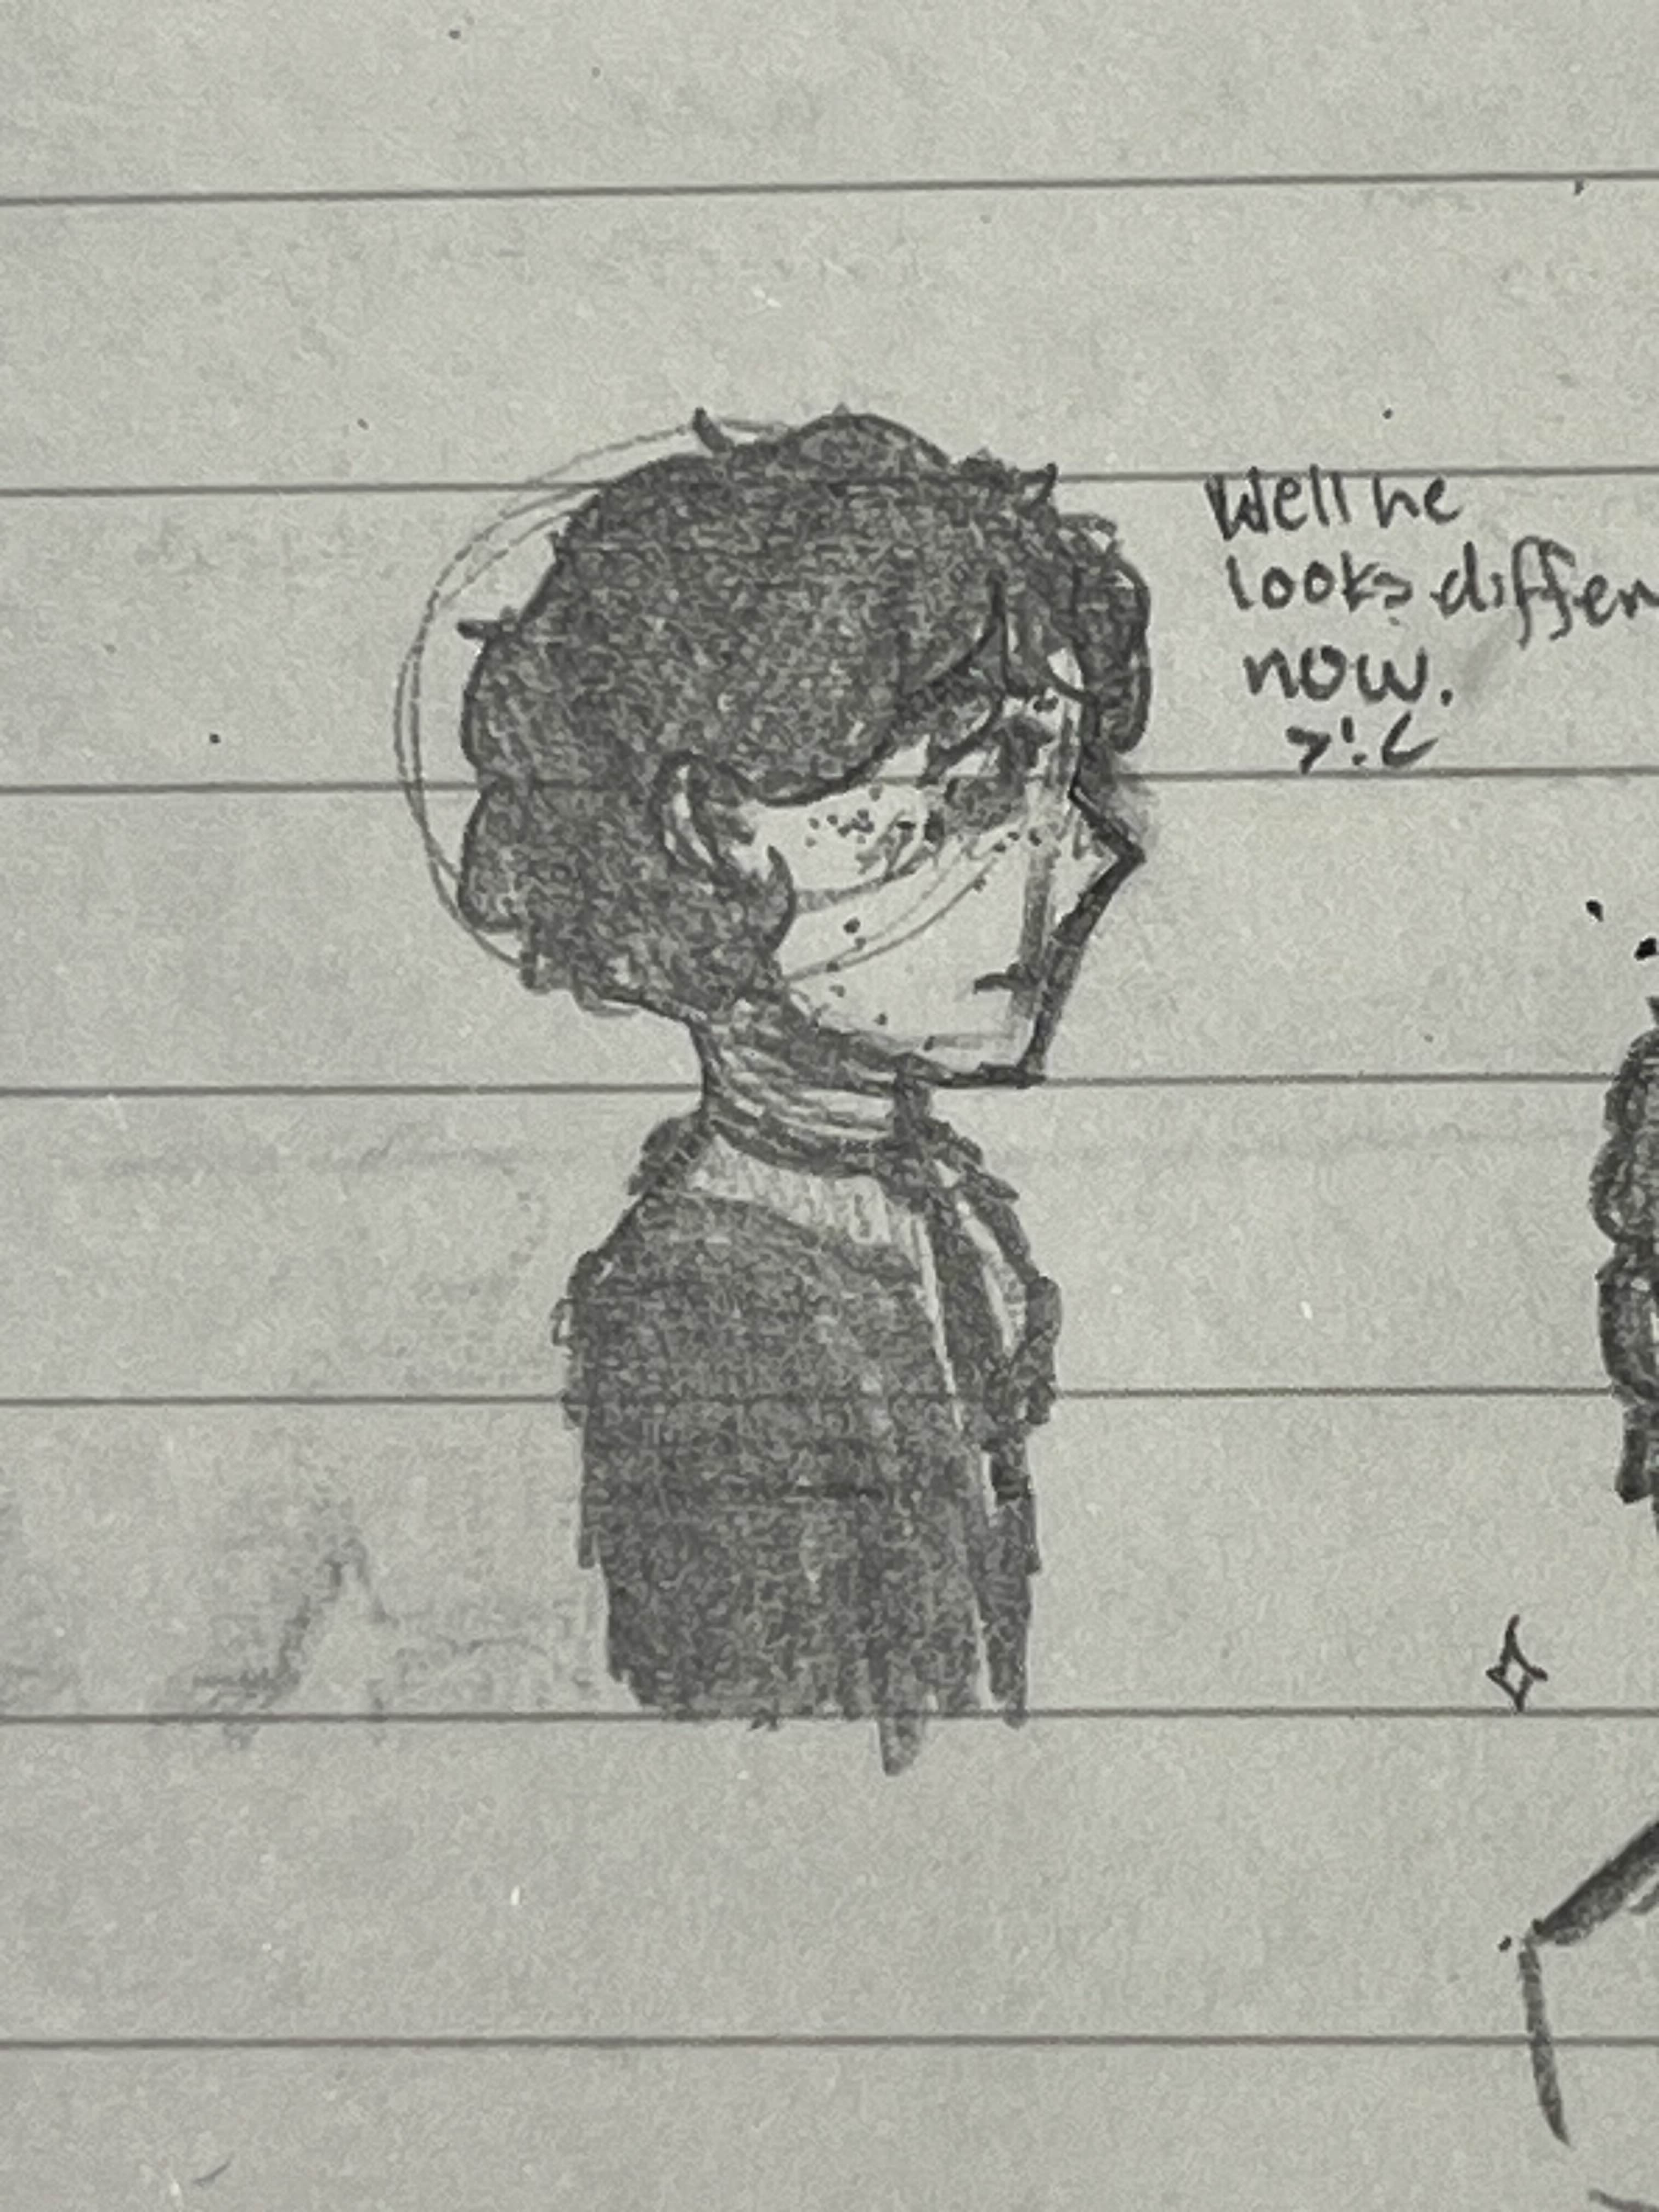 Well he
looks differ
now.
>:<